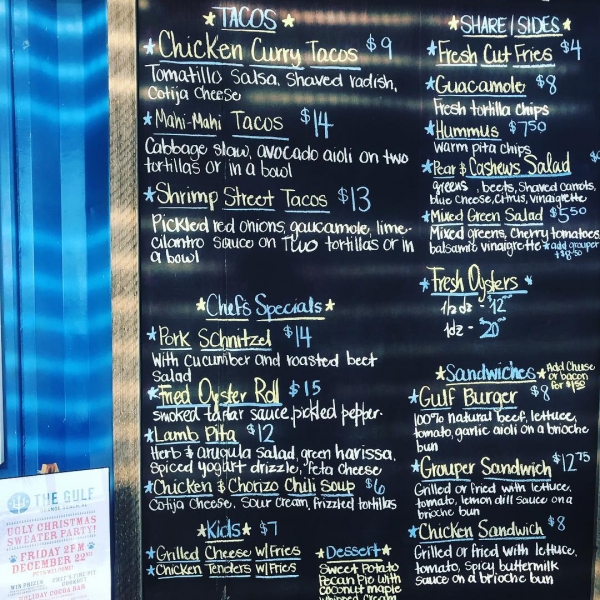 TACOS
Chicken Curry Tacos $9
Tomatillo Salsa, Shaved radish,
Cotija Cheese
Mahi-Mahi Tacos $14
Cabbage slaw, avocado aioli on two
tortillas or in a bowl
Shrimp Street Tacos $13
Pickled red onions, gaucamole, lime-
cilantro sauce on TWO tortillas or in
a bowl
Chef's Specials
Pork Schnitzel $14
With cucumber and roasted beet
Salad
Fried Oyster Roll $15
smoked tartar sauce, pickled pepper.
Lamb Pita $12
Herb & arugula salad, green harissa,
spiced yogurt drizzle, feta cheese
Chicken & Chorizo Chili Soup $6
Cotija Cheese, Sour Cream, frizzled tortillas
Kids $7
Grilled Cheese w/Fries
Chicken Tenders w/Fries
Dessert
Sweet Potato
Pecan Pie with
coconut maple
whipped cream
SHARE/SIDES
Fresh Cut Fries $4
Guacamole $8
Fresh tortilla chips
Hummus $7.50
warm pita chips
Pear & Cashews Salad
greens, beets, Shaved carrots,
blue cheese, citrus, vinaigrette
Mixed Green Salad $5.50
Mixed greens, Cherry tomatoes
balsamic vinaigrette *add grouper
+$8.50
Fresh Oysters
1/2 dz - $12
1dz - $20
Sandwiches
Add Cheese
or bacon
for $1.50
Gulf Burger $8
100% natural beef, lettuce,
tomato, garlic aioli on a brioche
bun
Grouper Sandwich $12.75
Grilled or fried with lettuce,
tomato, lemon dill sauce on a
brioche bun
Chicken Sandwich $8
Grilled or fried with lettuce,
tomato, spicy buttermilk
sauce on a brioche bun
THE GULF
UGLY CHRISTMAS
SWEATER PARTY!
FRIDAY 2PM
DECEMBER 22ND
WIN PRIZES
HOLIDAY COCOA BAR